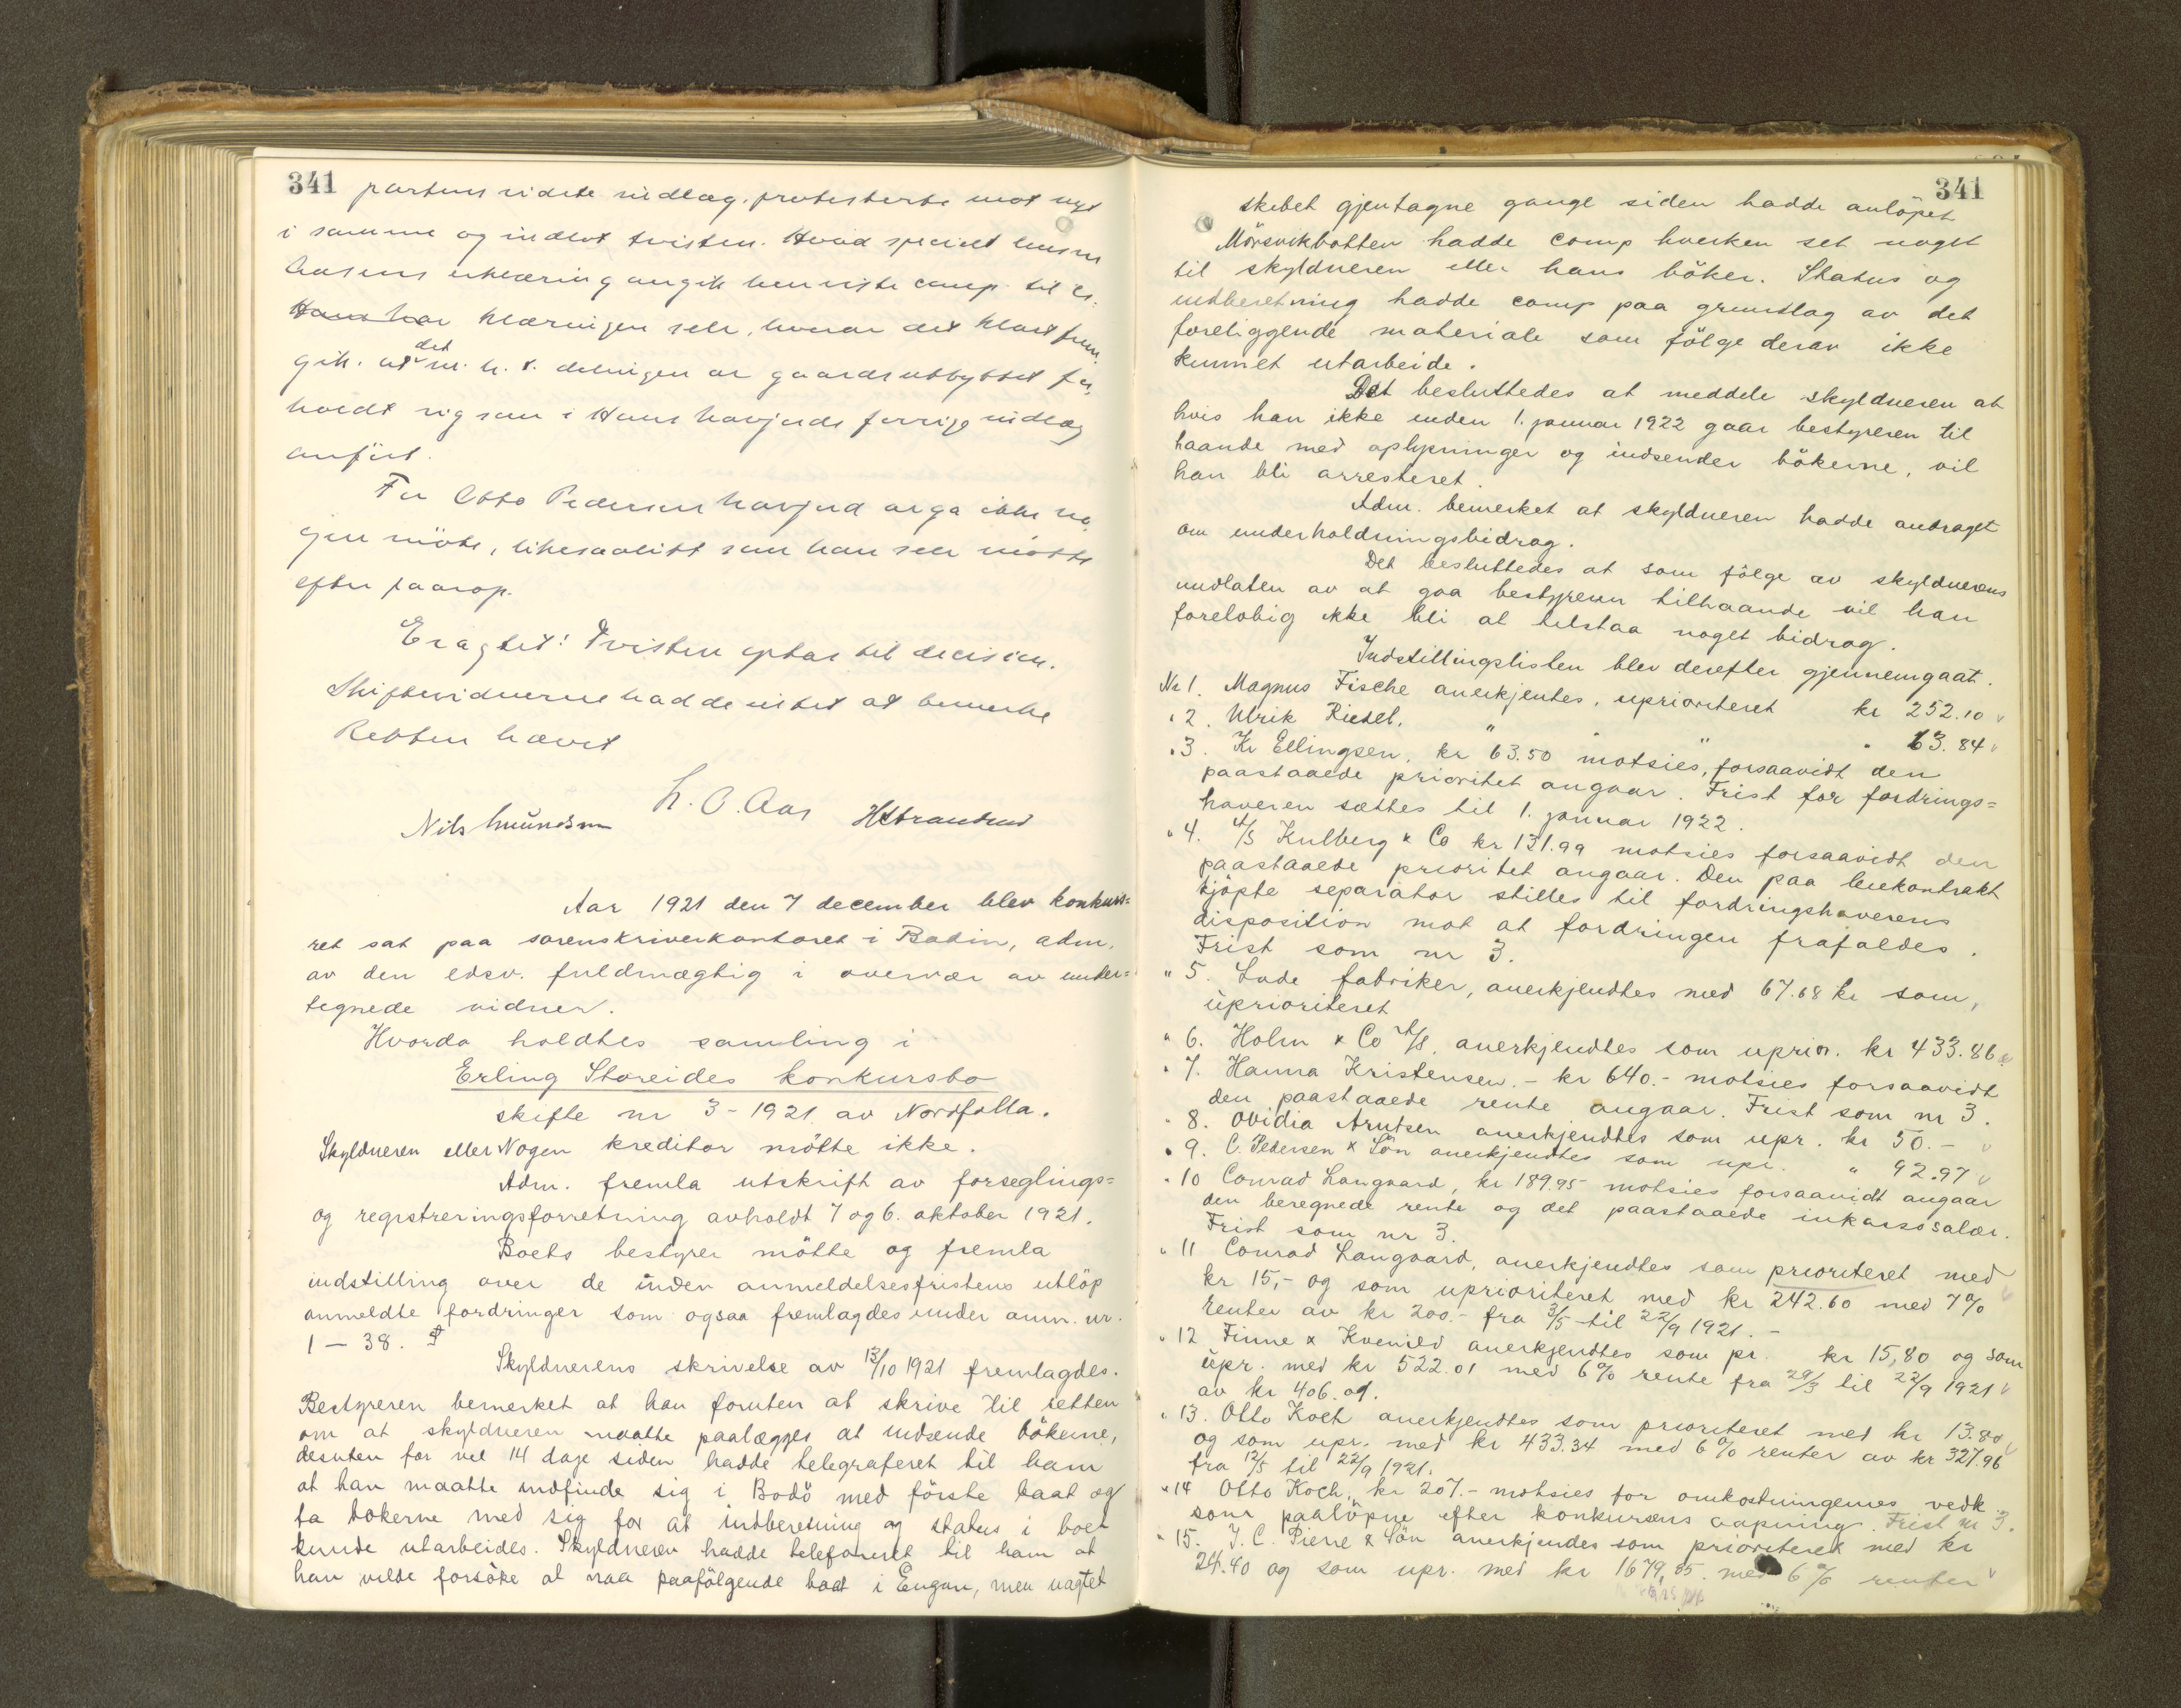 341
partens sidste indlæg, protesterte mot nyt
i samme og indlot tvisten. Hvad specielt
erklæring angik henviste comp. til er-
klæringen selv, hvorav det klart frem-
gik at det m. h. t. delingen av gaardsutbyttet for-
holdt sig som i Hans Havjords forrige indlæg
anført.
For Otto Pedersen Havjord avga ikke no-
gen møte, likesaalitt som han selv møtte
efter paarop.
Eragtet: Tvisten optas til decision.
Skiftevidnerne hadde intet at bemerke
Retten hævet
L. O. Aas
Nils
Aar 1921 den 7 december blev konkurs=
ret sat paa sorenskriverkontoret i Bodin, adm.
av den edsv. fuldmægtig i overvær av under=
tegnede vidner.
Hvorda holdtes samling i
Erling Storeides konkursbo
skifte nr 3 - 1921 av Nordfolla.
Skyldneren eller Nogen kreditor mötte ikke.
Adm. fremla utskrift av forseglings=
og registreringsforretning avholdt 7 og 6. oktober 1921.
Boets bestyrer mötte og fremla
indstilling over de inden anmeldelsesfristens utlöp
anmeldte fordringer som ogsaa fremlagdes under anm. nr.
1 - 38.
Skyldnerens skrivelse av 13/10 1921 fremlagdes.
Bestyreren bemerket at han foruten at skrive til retten
om at skyldneren maatte paalægges at indsende bökerne,
desuten for vel 14 dage siden hadde telegraferet til ham
at han maatte indfinde sig i Bodö med förste baat og
ta bokerne med sig for at indberetning og status i boet
kunde utarbeides. Skyldneren hadde telefoneret til ham at
han vilde forsöke at naa paafölgende baat i Engan, men uagtet
341
skibet gjentagne gange siden hadde anlöpet
Mörsvikbotten hadde comp hverken set noget
til skyldneren eller hans böker. Status og
indberetning hadde comp paa grundlag av det
foreliggende materiale som fölge derav ikke
kunnet utarbeide.
Det besluttedes at meddele skyldneren at
hvis han ikke inden 1. januar 1922 gaar bestyreren til
haande med oplysninger og indsender bökerne, vil
han bli arresteret.
Adm. bemerket at skyldneren hadde andraget
om underholdningsbidrag.
Det besluttedes at som fölge av skyldnerens
undlaten av at gaa bestyreren tilhaande vil han
forelobig ikke bli at tilstaa noget bidrag.
Indstillingslisten blev derefter gjennemgaat.
Nr 1. Magnus Fische anerkjentes, uprioriteret kr 252.10
" 2. Ulrik Riedel, " " " 63.84
" 3. Kr Ellingsen, kr 63.50 motsies, forsaavidt den
paastaaede prioritet angaar. Frist for fordrings=
haveren sættes til 1. januar 1922.
" 4. A/S Kulberg & Co kr 131.99 motsies forsaavidt den
paastaaede prioritet angaar. Den paa leiekontrakt
kjöpte separator stilles til fordringshaverens
disposition mot at fordringen frafaldes.
Frist som nr 3.
" 5. Lade fabriker, anerkjendtes med 67.68 kr som,
uprioriteret
" 6. Holm & Co A/S, anerkjendtes som uprior. kr 433.86
" 7. Hanna Kristensen. - kr 640.- motsies forsaavidt
den paastaaede rente angaar. Frist som nr 3.
" 8. Ovidia Arntsen anerkjendtes som upr. kr 50.-
" 9. C. Pedersen & Sön anerkjendtes som upr. " 92.97
" 10 Conrad Langaard, kr 189.95 motsies forsaavidt angaar
den beregnede rente og det paastaaede inkassosalær.
Frist som nr 3.
" 11 Conrad Langaard, anerkjendtes som prioriteret med
kr 15,- og som uprioriteret med kr 242.60 med 7%
renter av kr 200.- fra 3/5 til 22/9 1921. -
" 12 Finne & Kvenild anerkjendtes som pr. kr 15,80 og som
upr. med kr 522.01 med 6% rente fra 29/3 til 22/9 1921
av kr 406.01.
" 13. Otto Koch anerkjendtes som prioriteret med kr 13.80
og som upr. med kr 433.34 med 6% renter av kr 327.96
fra 12/5 til 22/9 1921.
" 14 Otto Koch, kr 207.- motsies for omkostningernes vedk.
som paalöpne efter konkursens aapning. Frist nr 3.
" 15. J. C. Piene & Sön anerkjendes som prioriteret med kr
24.40 og som upr. med kr 1679,35. med 6% renter